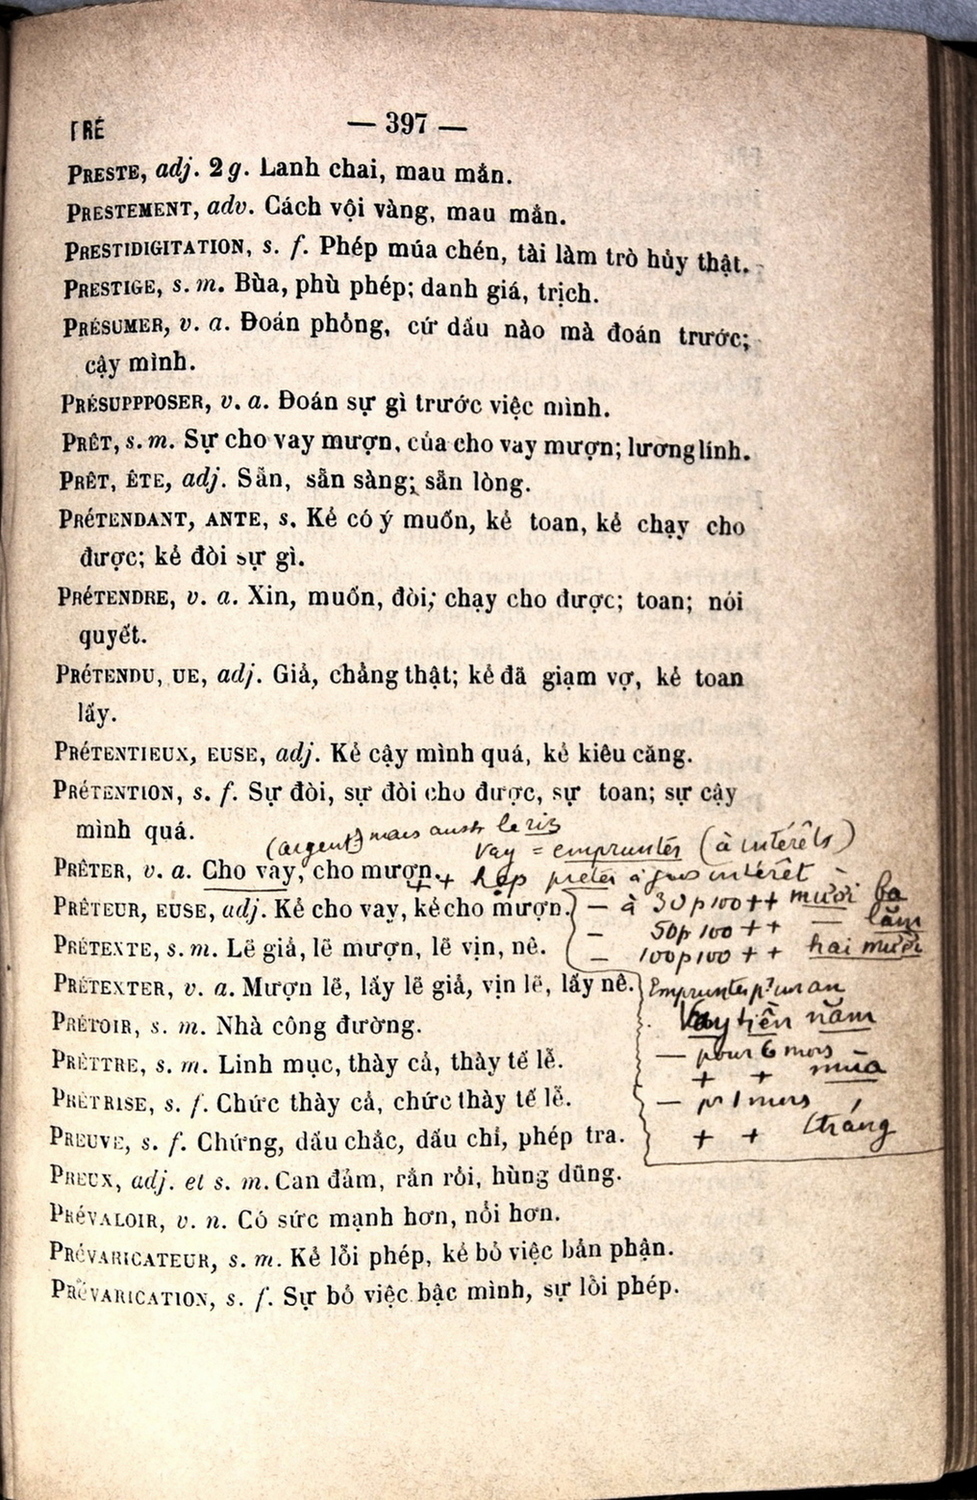 PRÉ
— 397 —
PRESTE, adj. 2 g. Lanh chai, mau mắn.
PRESTEMENT, adv. Cách vội vàng, mau mắn.
PRESTIDIGITATION, s. f. Phép múa chén, tài làm trò hủy thật.
PRESTIGE, s. m. Bùa, phù phép; danh giá, trịch.
PRÉSUMER, v. a. Đoán phỏng, cứ dấu nào mà đoán trước;
cậy mình.
PRÉSUPPPOSER, v. a. Đoán sự gì trước việc mình.
PRÊT, s. m. Sự cho vay mượn, của cho vay mượn; lương lính.
PRÊT, ÊTE, adj. Sẵn, sẵn sàng; sẵn lòng.
PRÉTENDANT, ANTE, s. Kẻ có ý muốn, kẻ toan, kẻ chạy cho
được; kẻ đòi sự gì.
PRÉTENDRE, v. a. Xin, muốn, đòi; chạy cho được; toan; nói
quyết.
PRÉTENDU, UE, adj. Giả, chẳng thật; kẻ đã giạm vợ, kẻ toan
lấy.
PRÉTENTIEUX, EUSE, adj. Kẻ cậy mình quá, kẻ kiêu căng.
PRÉTENTION, s. f. Sự đòi, sự đòi cho được, sự toan; sự cậy
mình quá.
(argent) mais aussi le riz
vay = emprunter (à intérêts)
PRÊTER, v. a. Cho vay, cho mượn.
+ + prêter à gros intérêt
PRÊTEUR, EUSE, adj. Kẻ cho vay, kẻ cho mượn.
— à 30 p 100 ++ mười ba
— 50 p 100 ++ — lăm
— 100 p 100 ++ hai mươi
PRÉTEXTE, s. m. Lẽ giả, lẽ mượn, lẽ vịn, nê.
PRÉTEXTER, v. a. Mượn lẽ, lấy lẽ giả, vịn lẽ, lấy nê.
Emprunter pr un an
Vay tiền năm
— pour 6 mois
+ + mùa
— pr 1 mois
+ + tháng
PRÉTOIR, s. m. Nhà công đường.
PRÊTTRE, s. m. Linh mục, thày cả, thày tế lễ.
PRÊTRISE, s. f. Chức thày cả, chức thày tế lễ.
PREUVE, s. f. Chứng, dấu chắc, dấu chỉ, phép tra.
PREUX, adj. et s. m. Can đảm, rắn rỏi, hùng dũng.
PRÉVALOIR, v. n. Có sức mạnh hơn, nổi hơn.
PRÉVARICATEUR, s. m. Kẻ lỗi phép, kẻ bỏ việc bổn phận.
PRÉVARICATION, s. f. Sự bỏ việc bậc mình, sự lỗi phép.